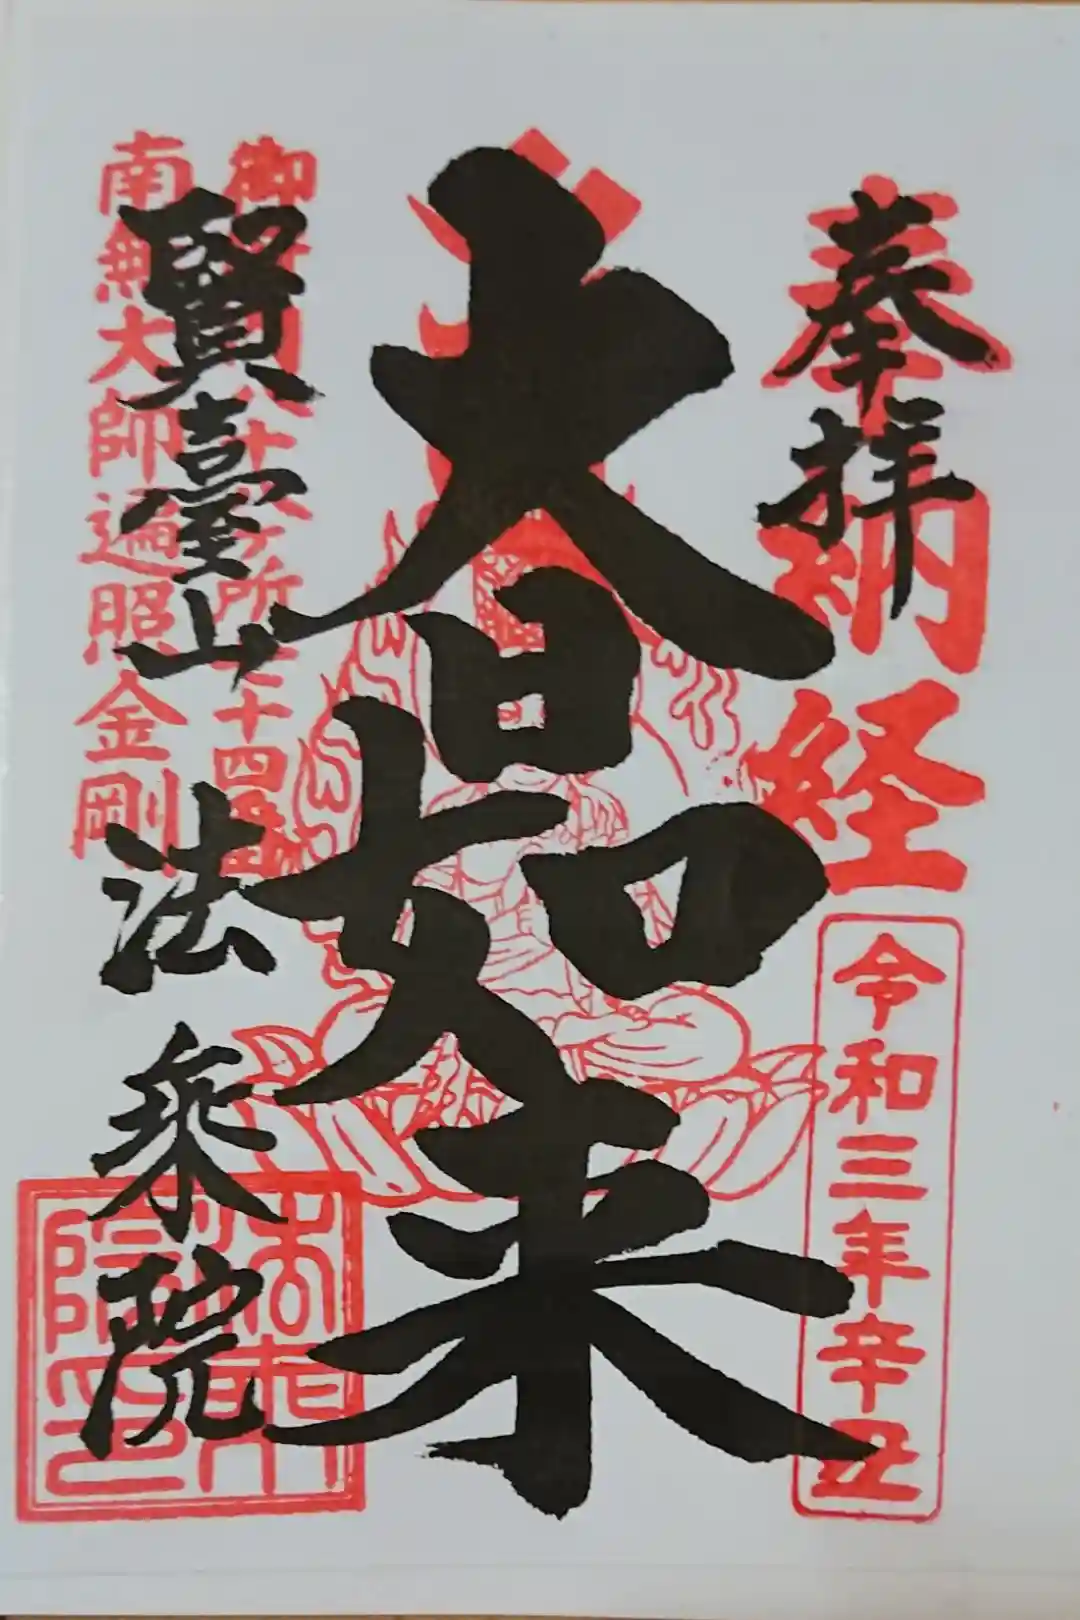 奉拝
奉納経
令和三年辛丑
大日如来
御府内八十八ヶ所七十四番
賢臺山
法乗院
南無大師遍照金剛